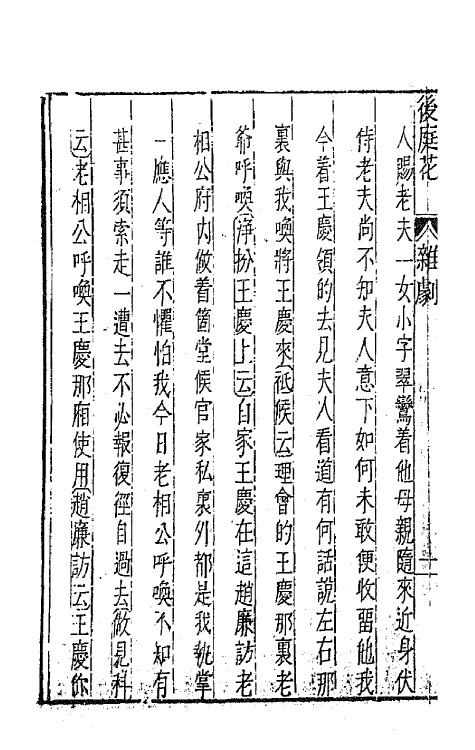 後庭花 雜劇 一
人賜老夫一女小字翠鸞着他母親隨來近身伏
侍老夫尚不知夫人意下如何未敢便收畱他我
今着王慶領的去見夫人看道有何話說左右那
裏與我喚將王慶來祗候云理會的王慶那裏老
爺呼喚淨扮王慶上云自家王慶在這趙廉訪老
相公府内做着箇堂候官家私裏外都是我執掌
一應人等誰不懼怕我今日老相公呼喚不知有
甚事須索走一遭去不必報復徑自過去做見科
云老相公呼喚王慶那廂使用趙廉訪云王慶你